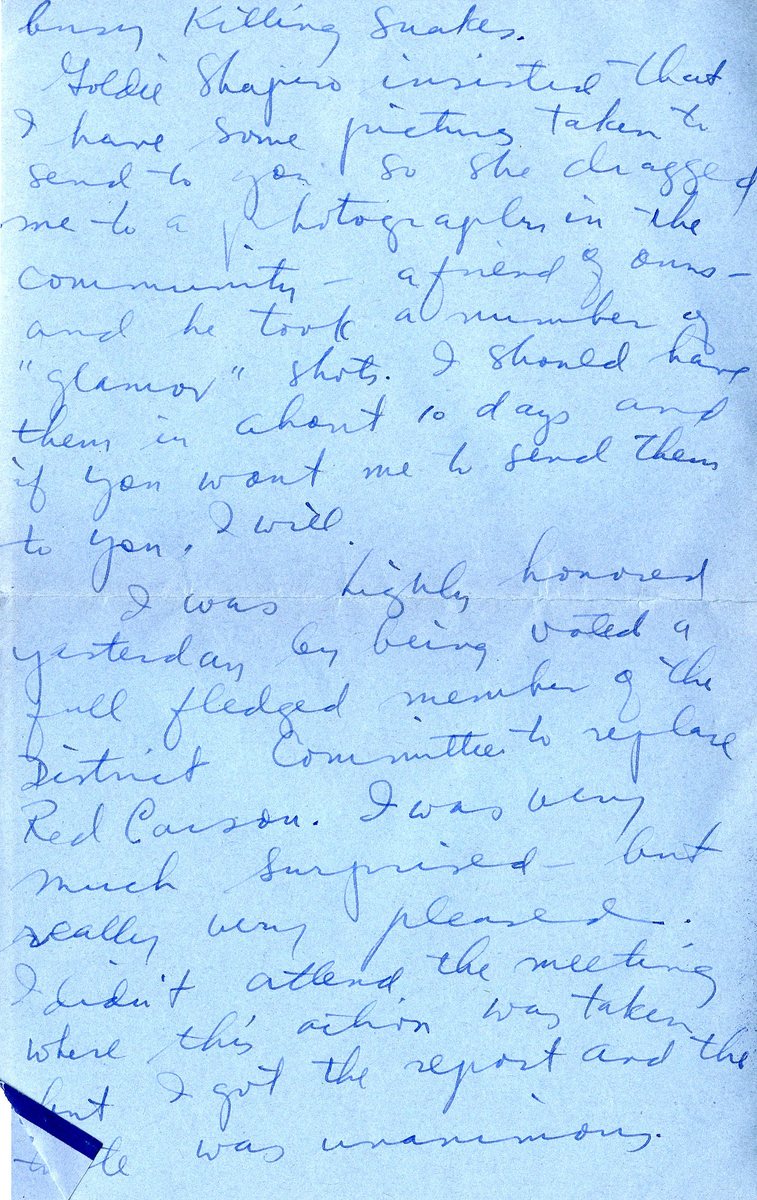 busy killing snakes.
Goldie Shapiro insisted that
I have some pictures taken to
send to you so she dragged
me to a photographer in the
community - a friend of ours -
and he took a number of
"glamor" shots. I should have
them in about 10 days and
if you want me to send them
to you, I will.
I was highly honored
yesterday by being voted a
full fledged member of the
District Committee to replace
Red Carson. I was very
much surprised - but
really very pleased.
I didn't attend the meeting
where this action was taken
but I got the report and the
was unanimous.